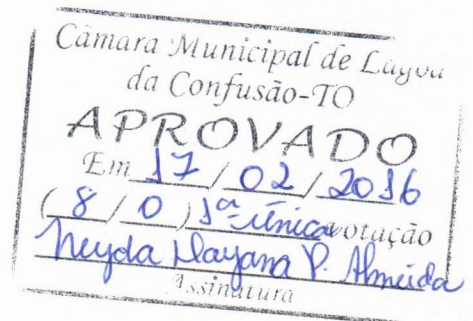 Câmara Municipal de Lagoa
da Confusão-TO
APROVADO
Em 17 / 02 / 2016
( 8 / 0 ) 1ª única votação
Neyda Dayana P. Almeida
Assinatura